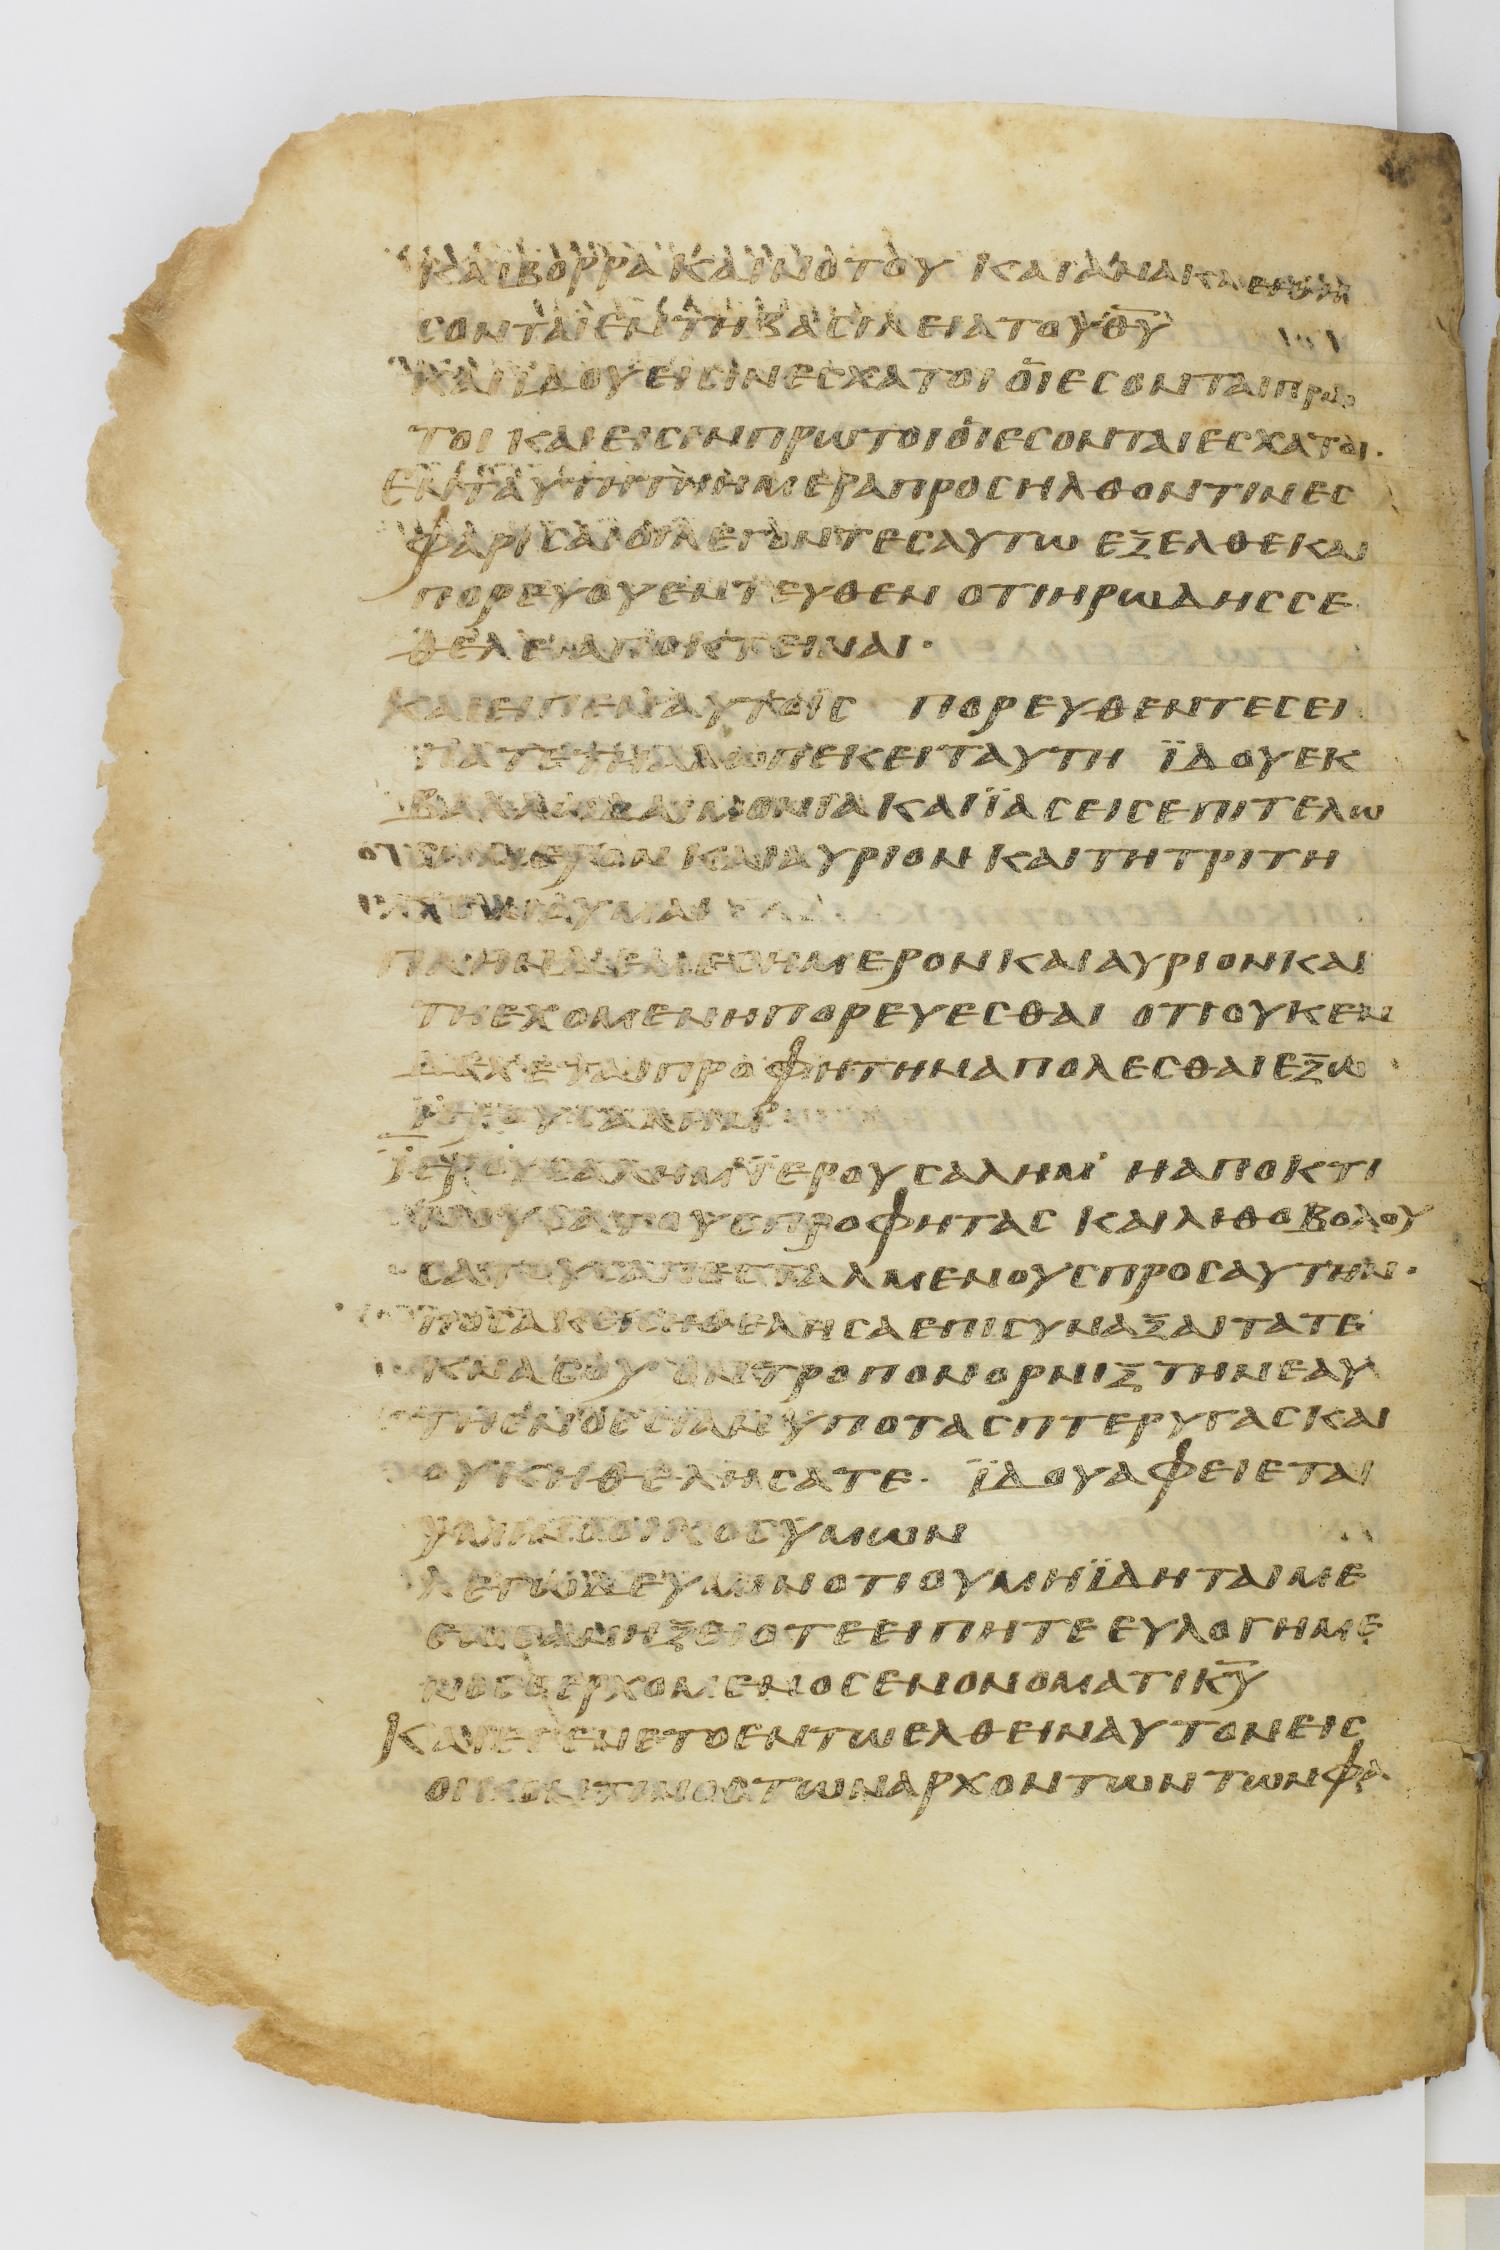 ΚΑΙΒΟΡΡΑΚΑΙΝΟΤΟΥ ΚΑΙΑΝΑΚΛΕΙΘΗ
CΟΝΤΑΙΕΝΤΗΒΑCΙΛΕΙΑΤΟΥΘ̅Υ̅
ΚΑΙΪΔΟΥΕΙCΙΝΕCΧΑΤΟΙΟΙΕCΟΝΤΑΙΠΡΩ
ΤΟΙΚΑΙΕΙCΙΝΠΡΩΤΟΙΟΙΕCΟΝΤΑΙΕCΧΑΤΟΙ·
ΕΝΤΑΥΤΗΤΗΗΜΕΡΑΠΡΟCΗΛΘΟΝΤΙΝΕC
ΦΑΡΙCΑΙΟΙΛΕΓΟΝΤΕCΑΥΤΩ ΕΞΕΛΘΕΚΑΙ
ΠΟΡΕΥΟΥΕΝΤΕΥΘΕΝ ΟΤΙΗΡΩΔΗCCΕ
ΘΕΛΕΙΑΠΟΚΤΕΙΝΑΙ·
ΚΑΙΕΙΠΕΝΑΥΤΟΙC ΠΟΡΕΥΘΕΝΤΕCΕΙ
ΠΑΤΕΤΗΑΛΩΠΕΚΕΙΤΑΥΤΗ ΪΔΟΥΕΚ
ΒΑΛΛΩΔΑΙΜΟΝΙΑΚΑΙΪΑCΕΙCΕΠΙΤΕΛΩ
CΗΜΕΡΟΝΚΑΙΑΥΡΙΟΝΚΑΙΤΗΤΡΙΤΗ
ΠΛΗΝΔΕΙΜΕCΗΜΕΡΟΝΚΑΙΑΥΡΙΟΝΚΑΙ
ΤΗΕΧΟΜΕΝΗΠΟΡΕΥΕCΘΑΙ ΟΤΙΟΥΚΕΝ
ΔΕΧΕΤΑΙΠΡΟΦΗΤΗΝΑΠΟΛΕCΘΑΙΕΞΩ
ΪΕΡΟΥCΑΛΗΜ
ΪΕΡΟΥCΑΛΗΜΪΕΡΟΥCΑΛΗΜ ΗΑΠΟΚΤΙ
ΝΟΥCΑΤΟΥCΠΡΟΦΗΤΑC ΚΑΙΛΙΘΟΒΟΛΟΥ
CΑΤΟΥCΑΠΕCΤΑΛΜΕΝΟΥCΠΡΟCΑΥΤΗΝ·
ΠΟCΑΚΕΙCΗΘΕΛΗCΑΕΠΙCΥΝΑΞΑΙΤΑΤΕ
ΚΝΑCΟΥ ΟΝΤΡΟΠΟΝΟΡΝΙΞΤΗΝΕΑΥ
ΤΗCΝΟCCΙΑΝΥΠΟΤΑCΠΤΕΡΥΓΑCΚΑΙ
ΟΥΚΗΘΕΛΗCΑΤΕ· ΪΔΟΥΑΦΕΙΕΤΑΙ
ΥΜΙΝΟΟΙΚΟCΥΜΩΝ
ΛΕΓΩΔΕΥΜΙΝΟΤΙΟΥΜΗΪΔΗΤΑΙΜΕ
ΕΩCΑΝΗΞΕΙΟΤΕΕΙΠΗΤΕΕΥΛΟΓΗΜΕ
ΝΟCΟΕΡΧΟΜΕΝΟCΕΝΟΝΟΜΑΤΙΚ̅Υ̅
ΚΑΙΕΓΕΝΕΤΟΕΝΤΩΕΛΘΕΙΝΑΥΤΟΝΕΙC
ΟΙΚΟΝΤΙΝΟCΤΩΝΑΡΧΟΝΤΩΝΤΩΝΦΑ